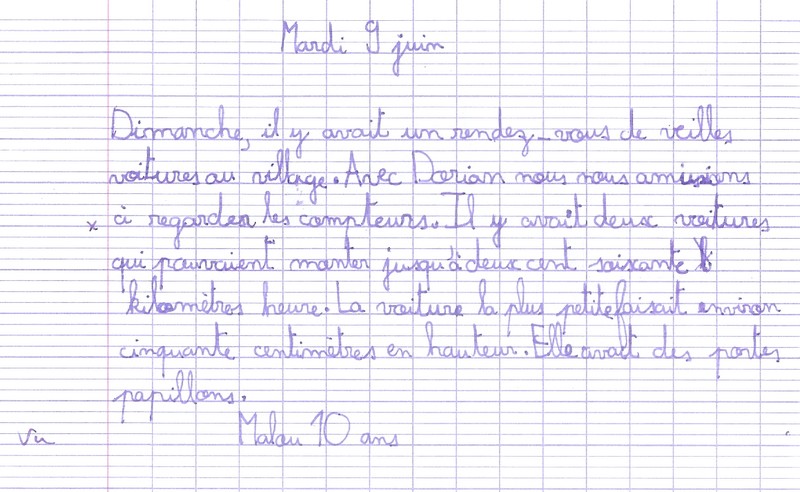 Mardi 9 juin
Dimanche, il y avait un rendez-vous de veilles
voitures au village. Avec Dorian nous nous amusions
x à regarder les compteurs. Il y avait deux voitures
qui pouvaient monter jusqu'à deux cent soixante
kilomètres heure. La voiture la plus petite faisait environ
cinquante centimètres en hauteur. Elle avait des portes
papillons.
Vu Malou 10 ans